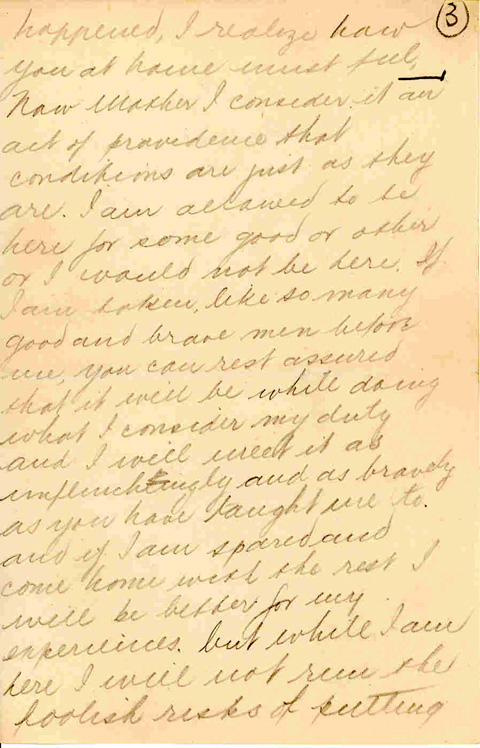 3
happened, I realize how
you at home must feel,
Now Mother I consider it an
act of providence that
conditions are just as they
are. I am allowed to be
here for some good or other
or I would not be here. If
I am taken, like so many
good and brave men before
me, you can rest assured
that it will be while doing
what I consider my duty
and I will meet it as
unflinchingly and as bravely
as you have taught me to.
and if I am spared and
come home with the rest I
will be better for my
experiences. but while I am
here I will not run the
foolish risks of putting